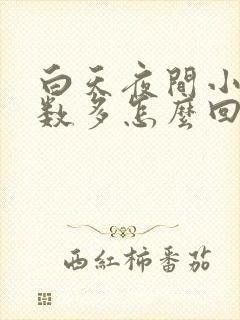 白天夜間小
数多怎麼回
西紅柿番茄